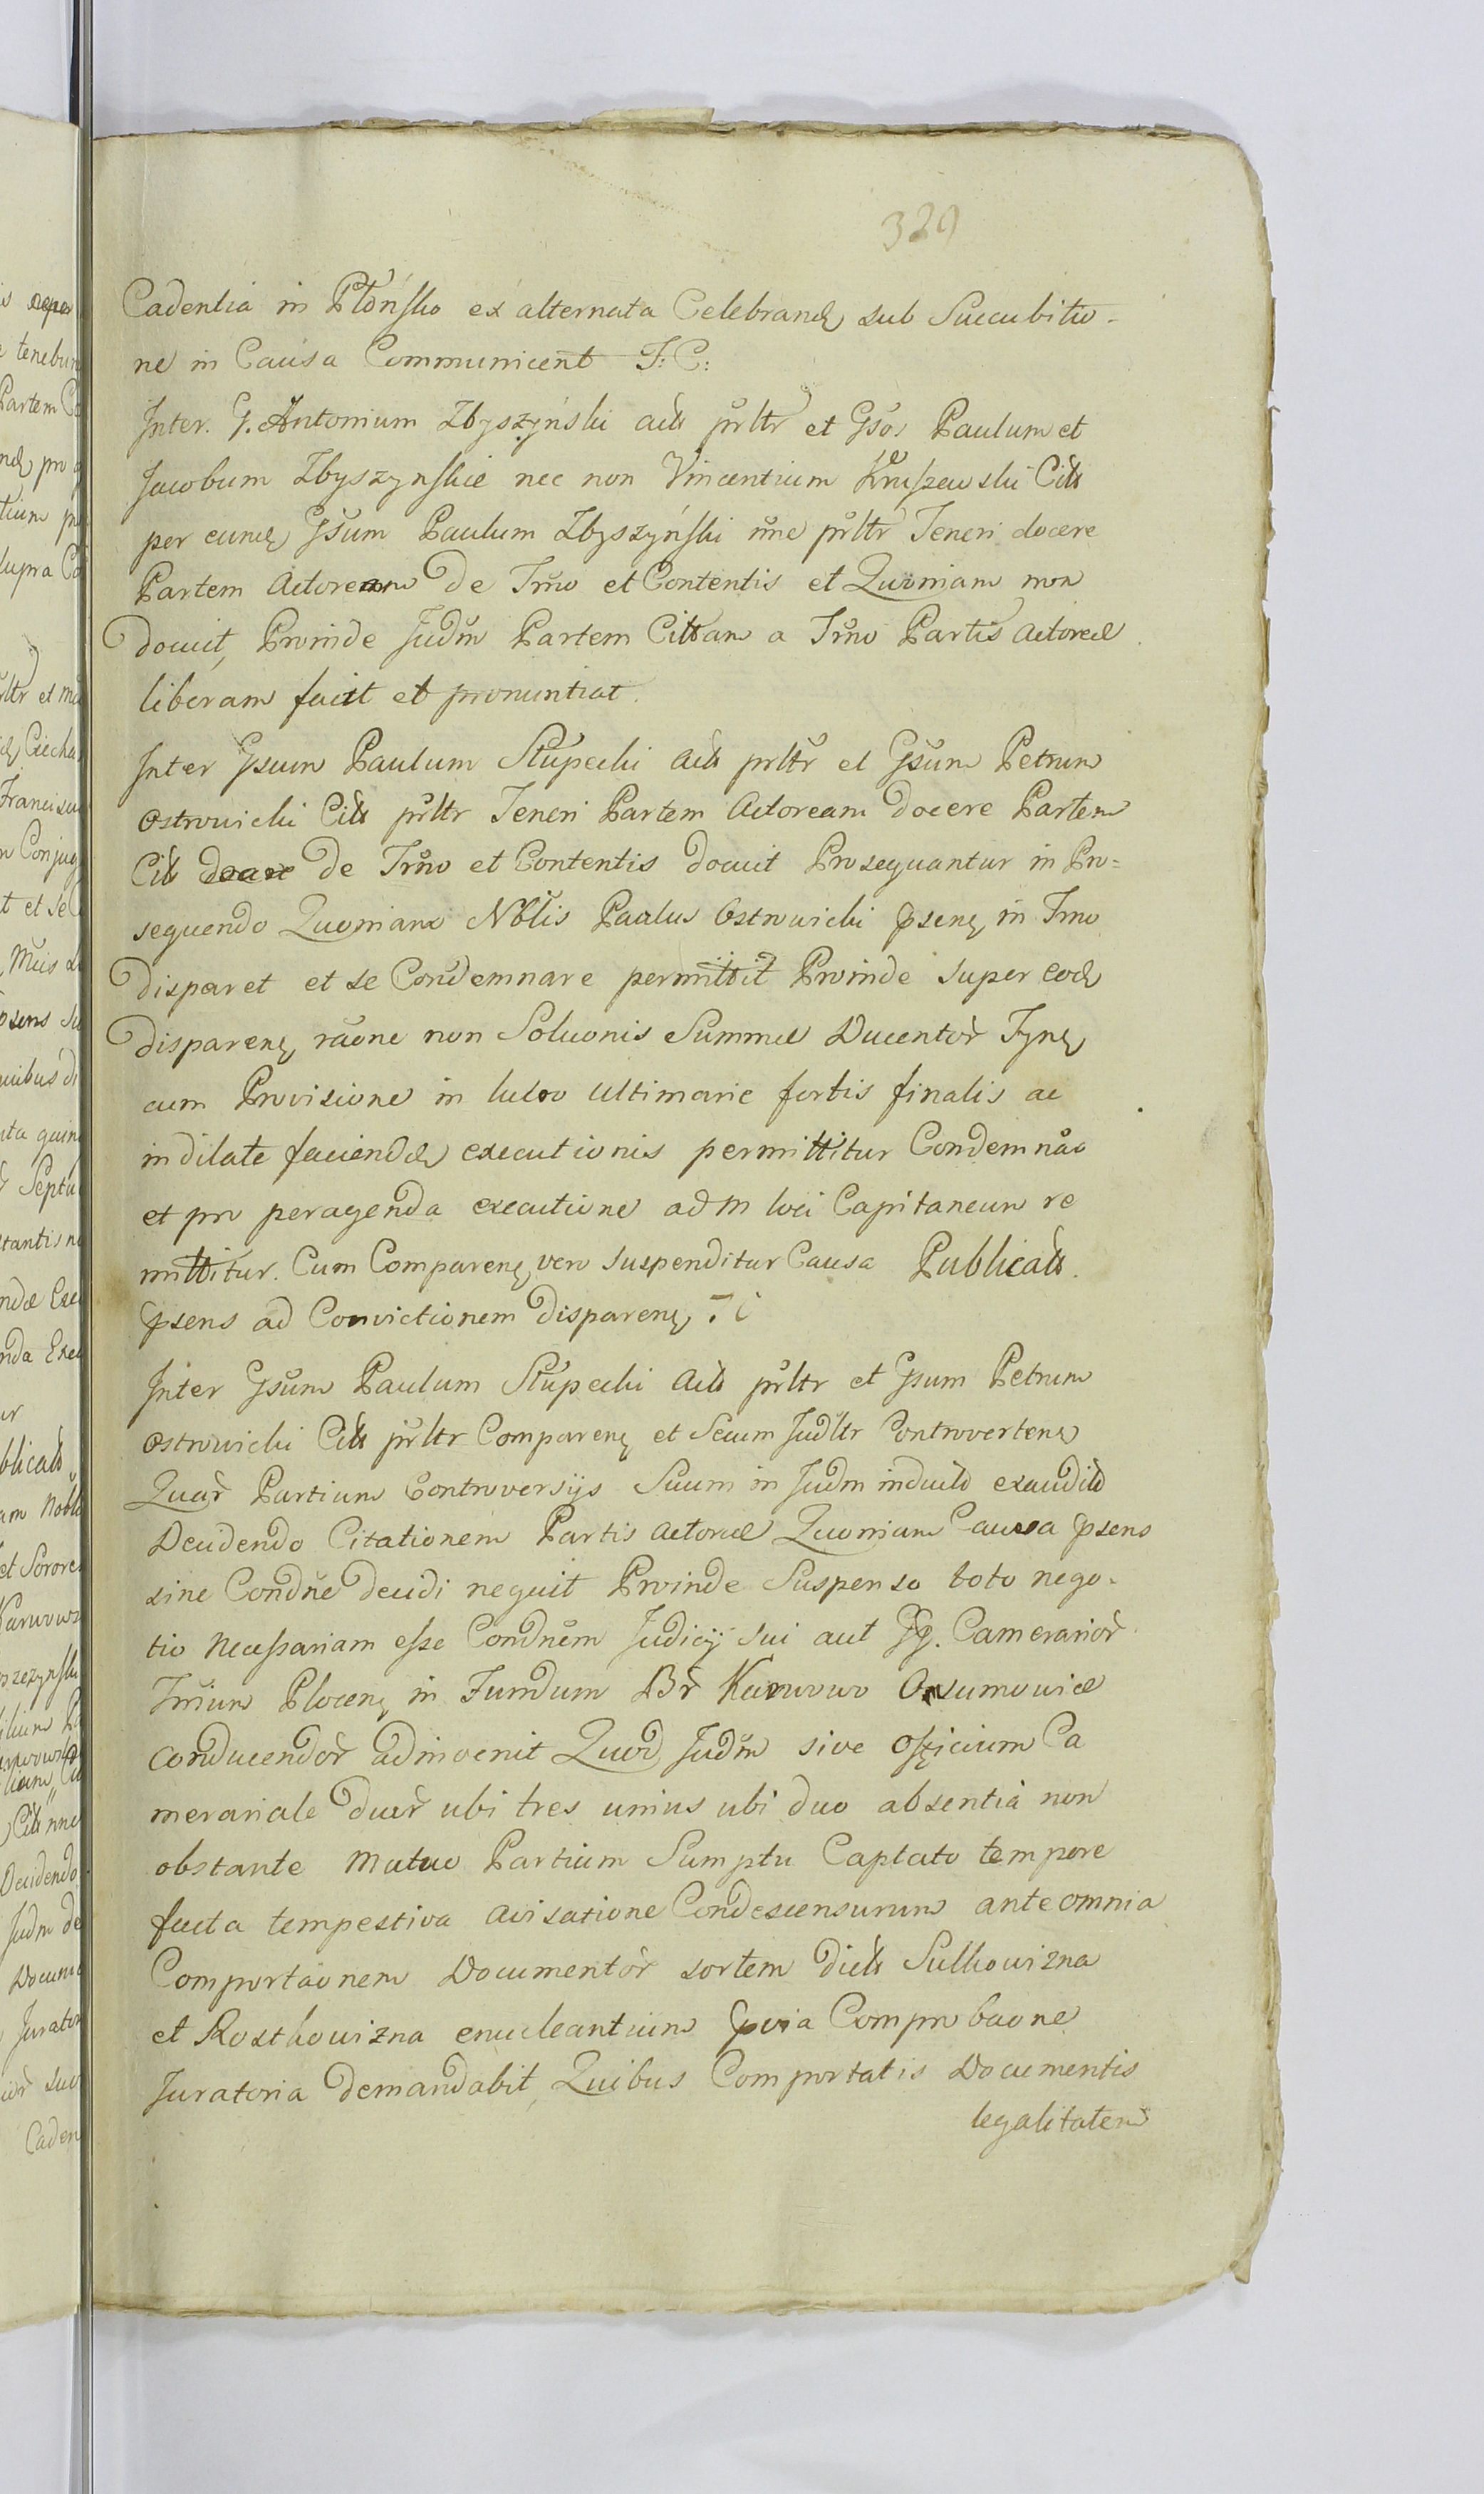 329
Cadentia in Płońsko ex alternata Celebrand sub Succubitio-
ne in Causa Communicent T: C:
Inter. G. Antonium Zbyszyński act prltr et Gsos Paulum et
Jacobum Zbyszynskie nec non Vincentium Kruszewski Citt
per eund Gsum Paulum Zbyszyński nne prltr Teneri docere
Partem Actoream De Trno et Contentis et Quoniam non
docuit, Proinde Judm Partem Cittam a Trno Partis Actoreæ
liberam facit et pronuntiat.
Inter Gsum Paulum Słupecki Act prltr et Gsum Petrum
Ostrowicki Citt prltr Teneri Partem Actoream Docere Partem
Citt de Trno et Contentis Docuit Prosequantur in Pro=
sequendo Quoniam Nblis Paulus Ostrowicki psens in Trno
Disparet et se Condemnare permittit Proinde super eod
Disparens raone non Soluonis Summæ Ducentor Tyn
cum Provisione in lucro ultimarie sortis finalis ac
indilate faciendæ executionis permittitur Condemnao
et pro peragenda executione ad m loci Capitaneum re
mittitur. Cum Comparen vero suspenditur Causa Publicatt.
psens ad Convictionem Disparen T C
Inter Gsum Paulum Słupecki Act prltr et Gsum Petrum
Ostrowicki Citt prltr Comparen et Secum Judltr Controverten
Quar Partium Controversijs Suum in Judm inducto exaudito
Decidendo Citationem Partis Actoreæ Quoniam Causa psens
sine Condne decidi nequit Proinde Suspenso toto nego-
tio Necessariam esse Condnem Judicij sui aut GG. Camerarior
Trium Plocen in Fundum Br Karwowo Orszumowice
Conducendor adinvenit Quod Judm sive Officium Ca
merariale Duar ubi tres unius ubi duo absentiâ non
obstante Mutuo Partium Sumptu Captato tempore
facta tempestiva Avisatione Condescensurum ante omnia
Comportaonem Documentor sortem dict Sulkowizna
et Rostkowizna enucleantium pvia Comprobaone
Juratoria demandabit, Quibus Comportatis Documentis
legalitatem